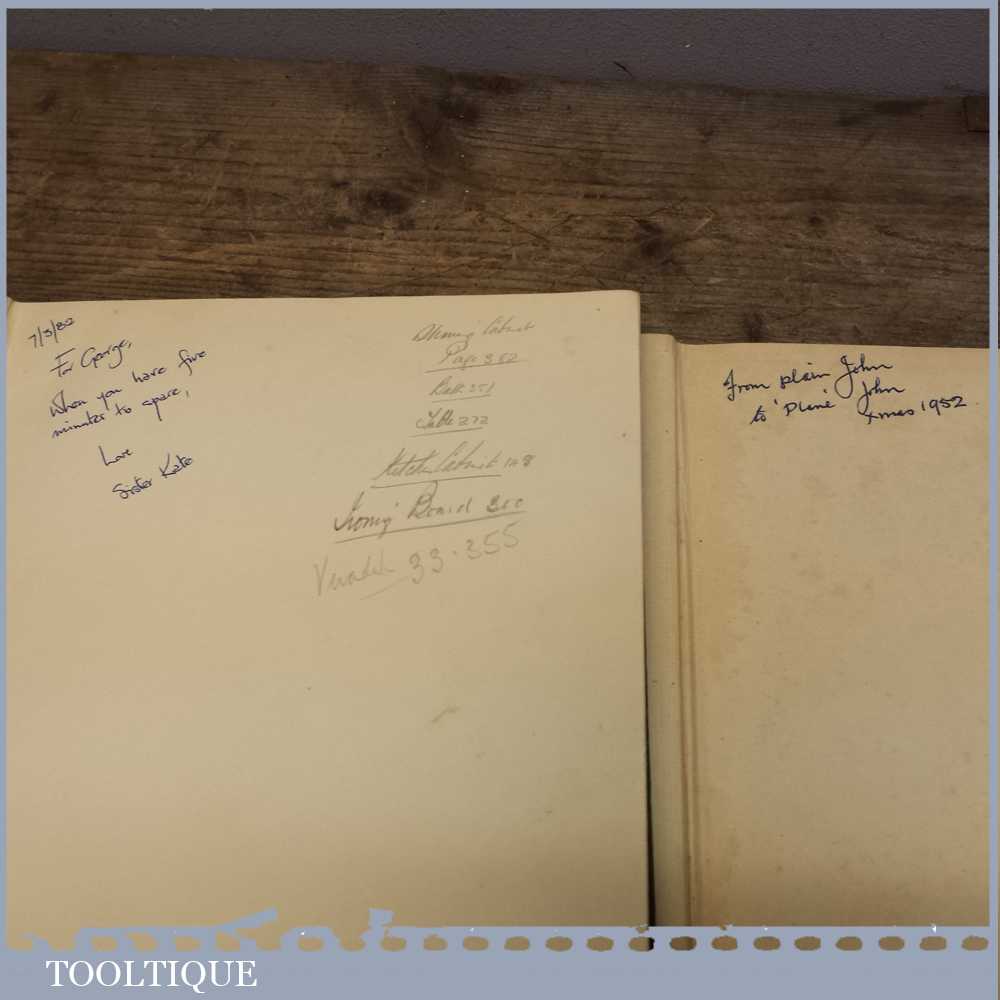 7/3/82
For George,
When you have five
minutes to spare,
Love
Sister Kate
Cabinet
Page 352
Table 272
Cabinet
Ironing Board 300
33.355
From plain John
to 'Plane' John
Xmas 1952
TOOLTIQUE